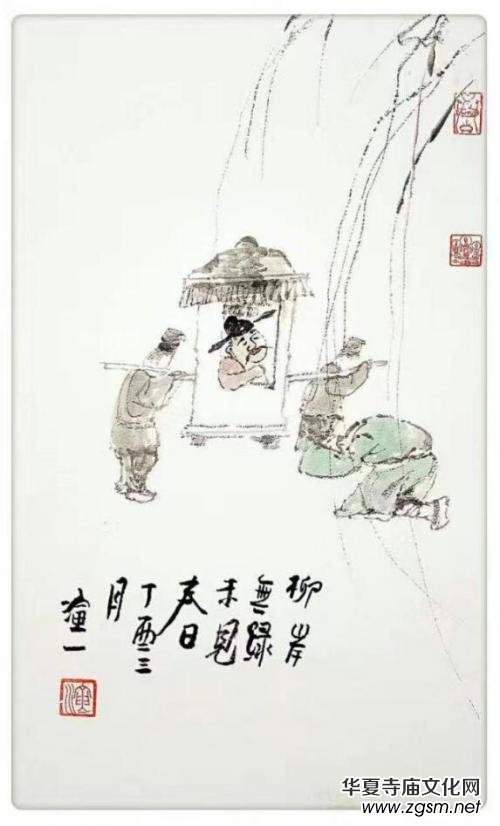 柳岸
無绿
未見
春日
丁酉三
月
演一
演
华夏寺庙文化网
www.zgsm.net